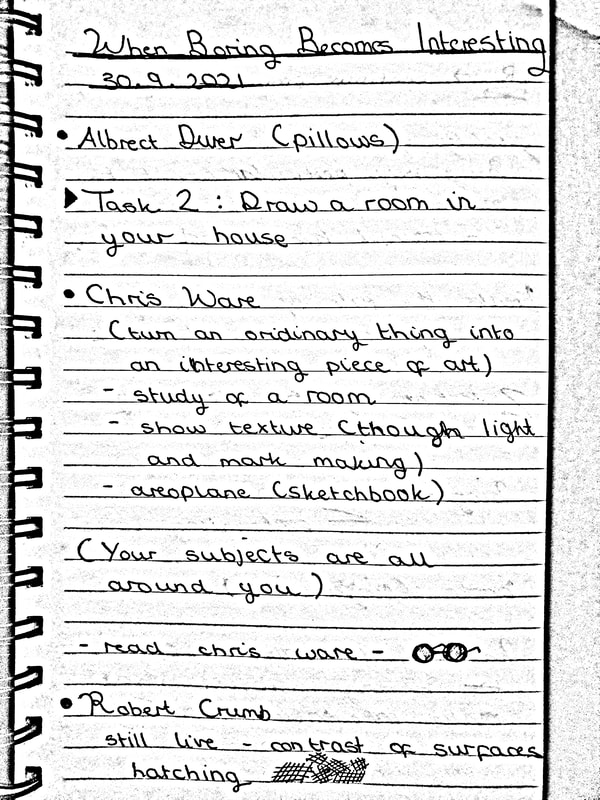 When Boring Becomes Interesting
30.9.2021
• Albrect Durer (pillows)
▶ Task 2 : Draw a room in
your house
• Chris Ware
(turn an oridinary thing into
an interesting piece of art)
- study of a room
- show texture (though light
and mark making)
- areoplane (sketchbook)
(Your subjects are all
around you)
- read chris ware -
• Robert Crumb
still live - contrast of surfaces
hatching